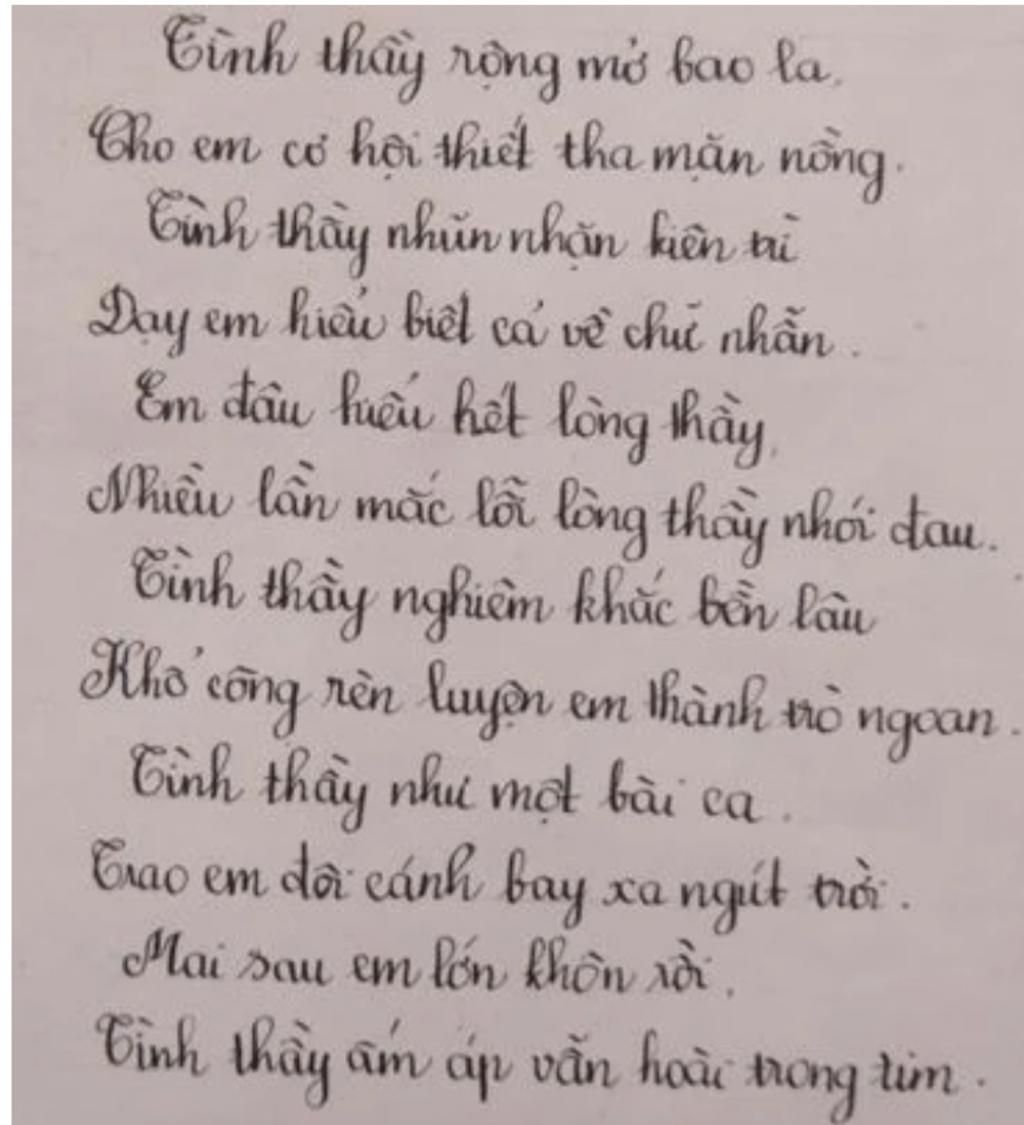 Tình thầy rộng mở bao la.
Cho em cơ hội thiết tha mặn nồng.
Tình thầy nhũn nhặn kiên trì
Dạy em hiểu biết cả về chữ nhẫn.
Em đâu hiểu hết lòng thầy,
Nhiều lần mắc lỗi lòng thầy nhói đau.
Tình thầy nghiêm khắc bền lâu
Khổ công rèn luyện em thành trò ngoan.
Tình thầy như một bài ca.
Trao em đôi cánh bay xa ngút trời.
Mai sau em lớn khôn rồi.
Tình thầy ấm áp vẫn hoài trong tim.